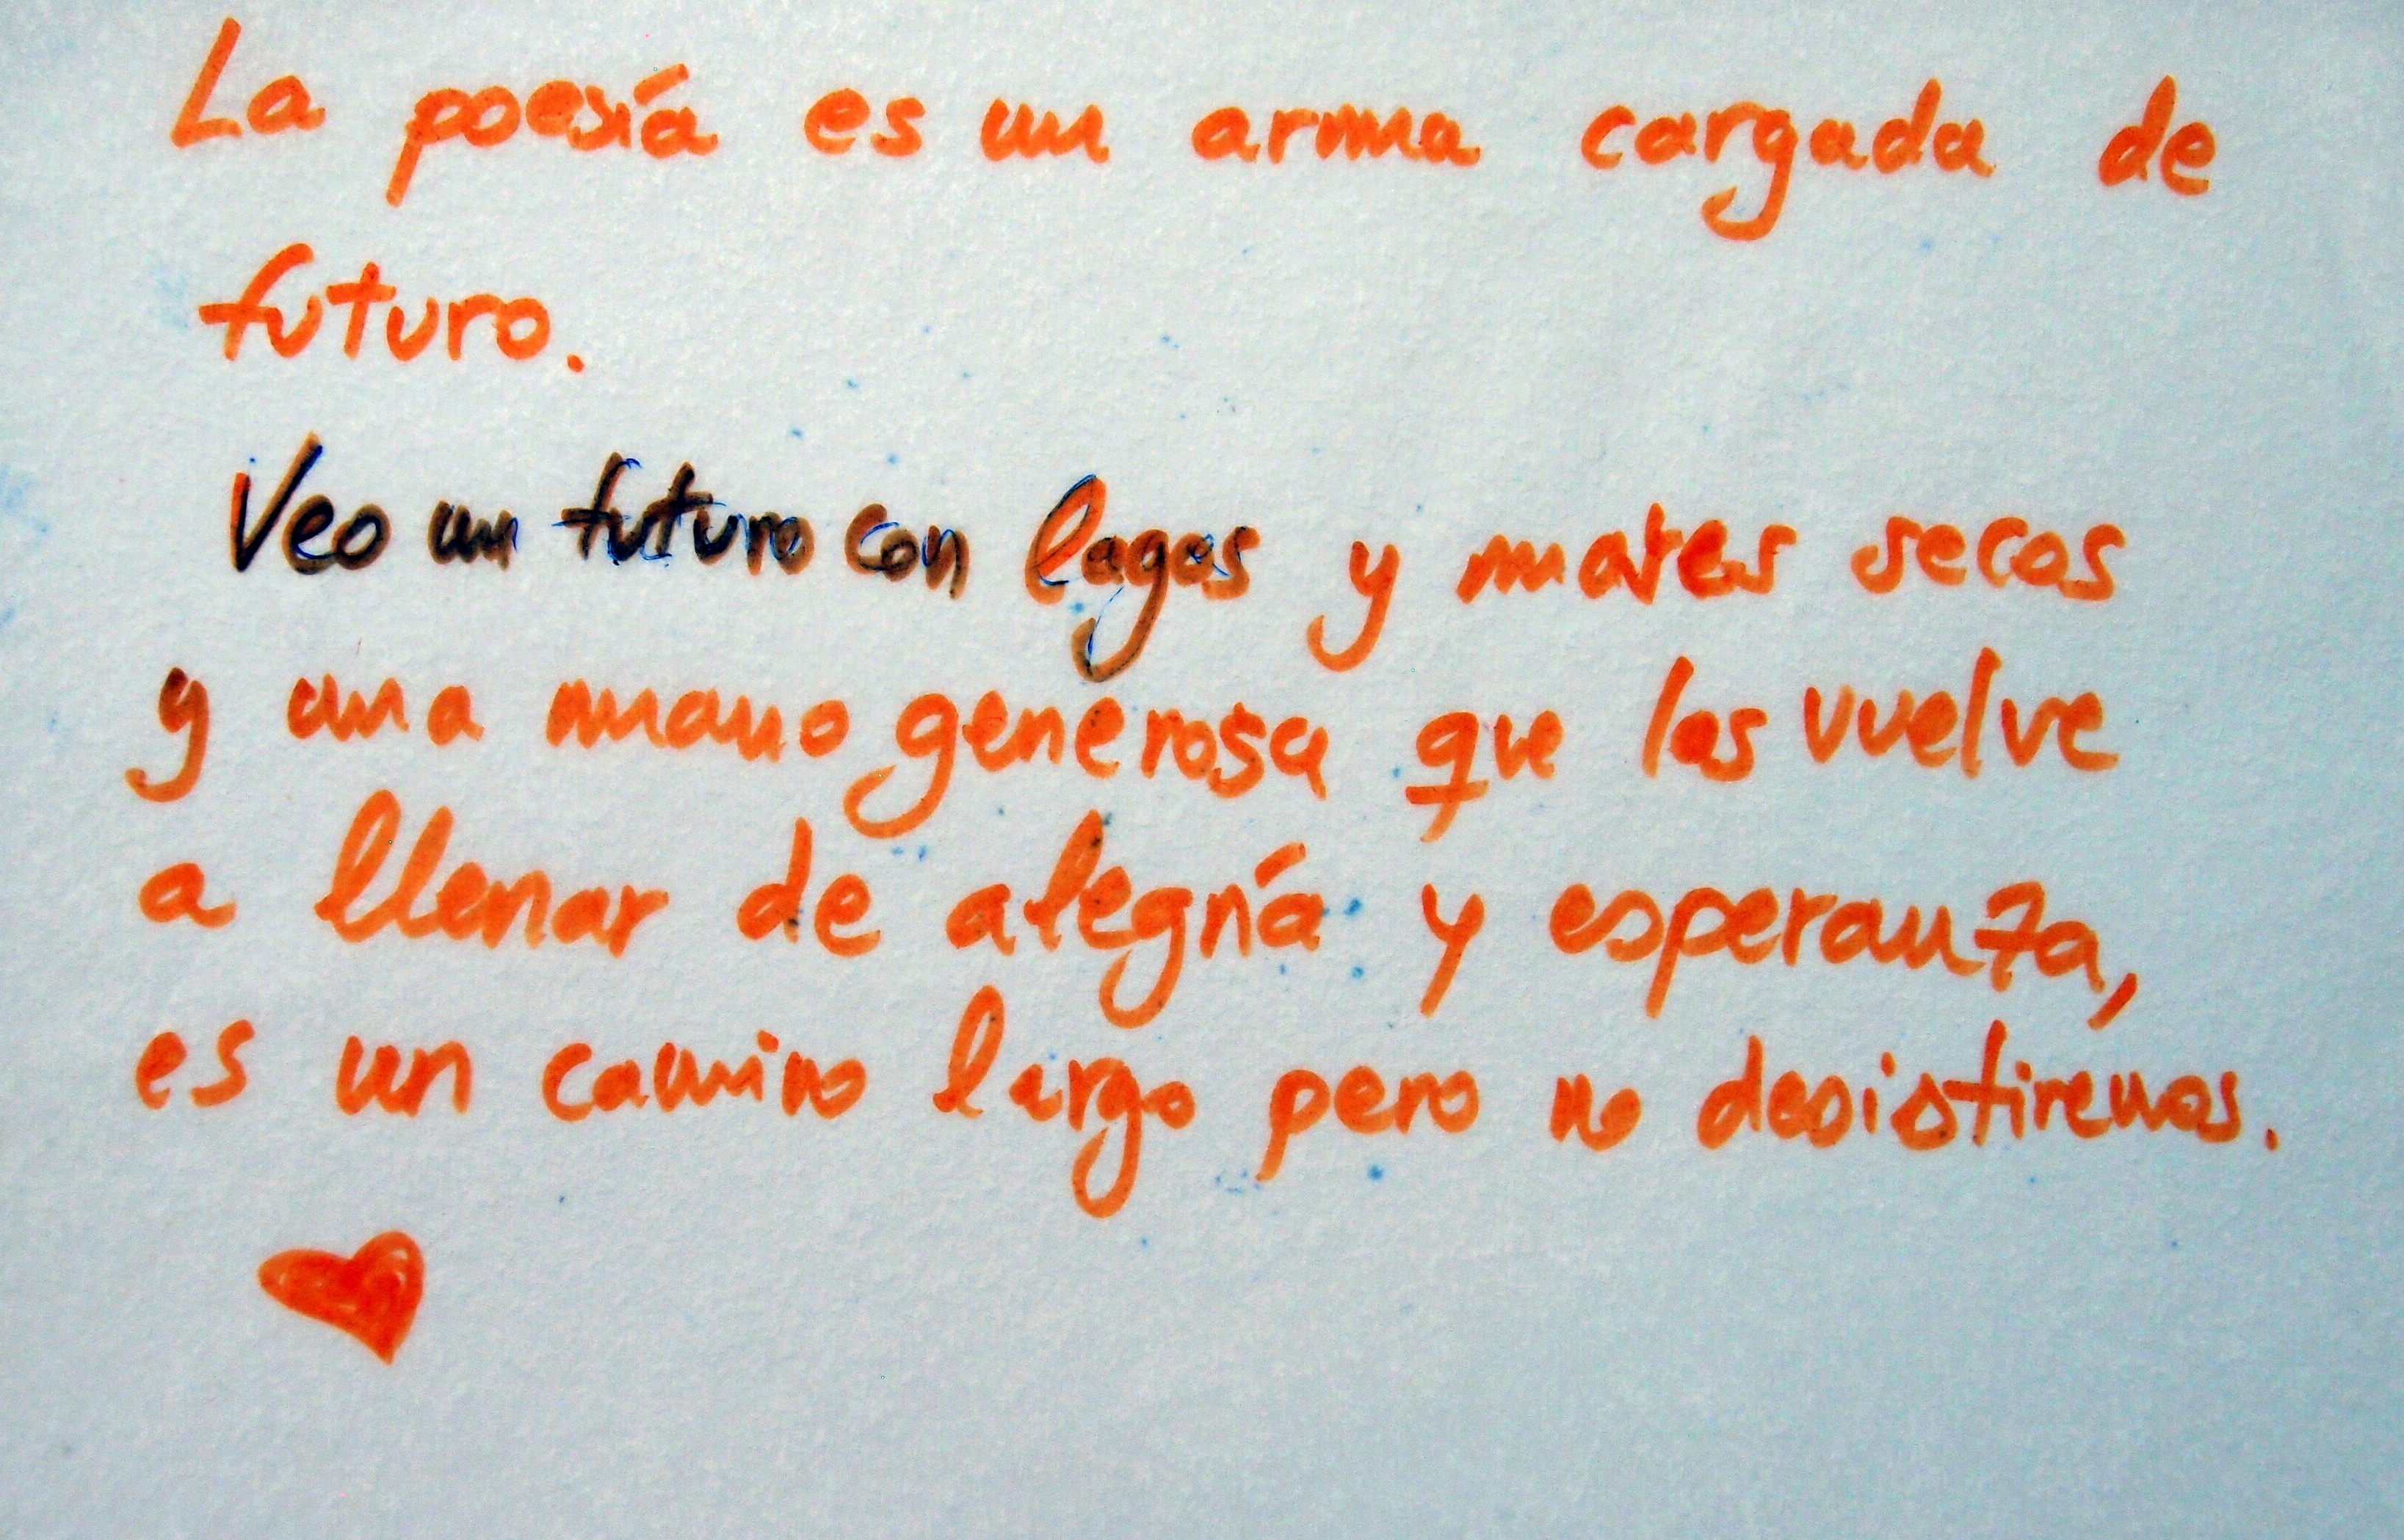 La poesía es un arma cargada de
futuro.
Veo un futuro con lagos y mares secos
y una mano generosa que los vuelve
a llenar de alegría y esperanza,
es un camino largo pero no desistiremos.